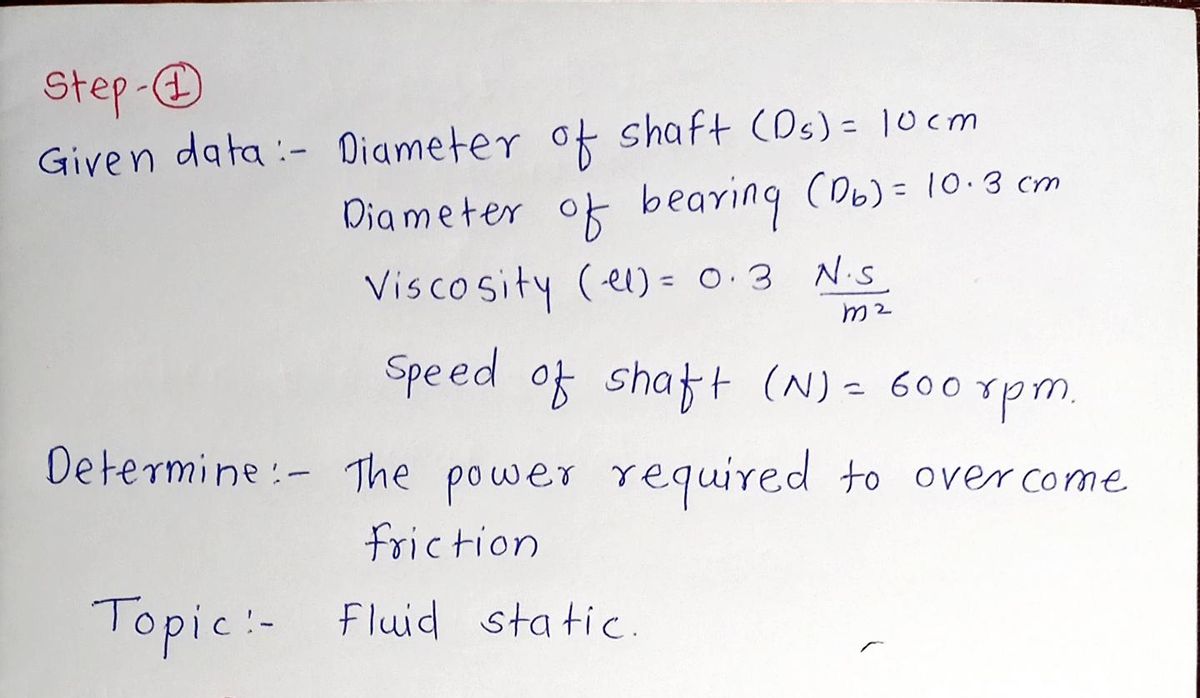 Step-①
Given data :- Diameter of shaft (Ds) = 10cm
Diameter of bearing (Db) = 10.3 cm
Viscosity (μ) = 0.3 N.s/m²
Speed of shaft (N) = 600 rpm.
Determine :- The power required to overcome
friction
Topic :- Fluid static.